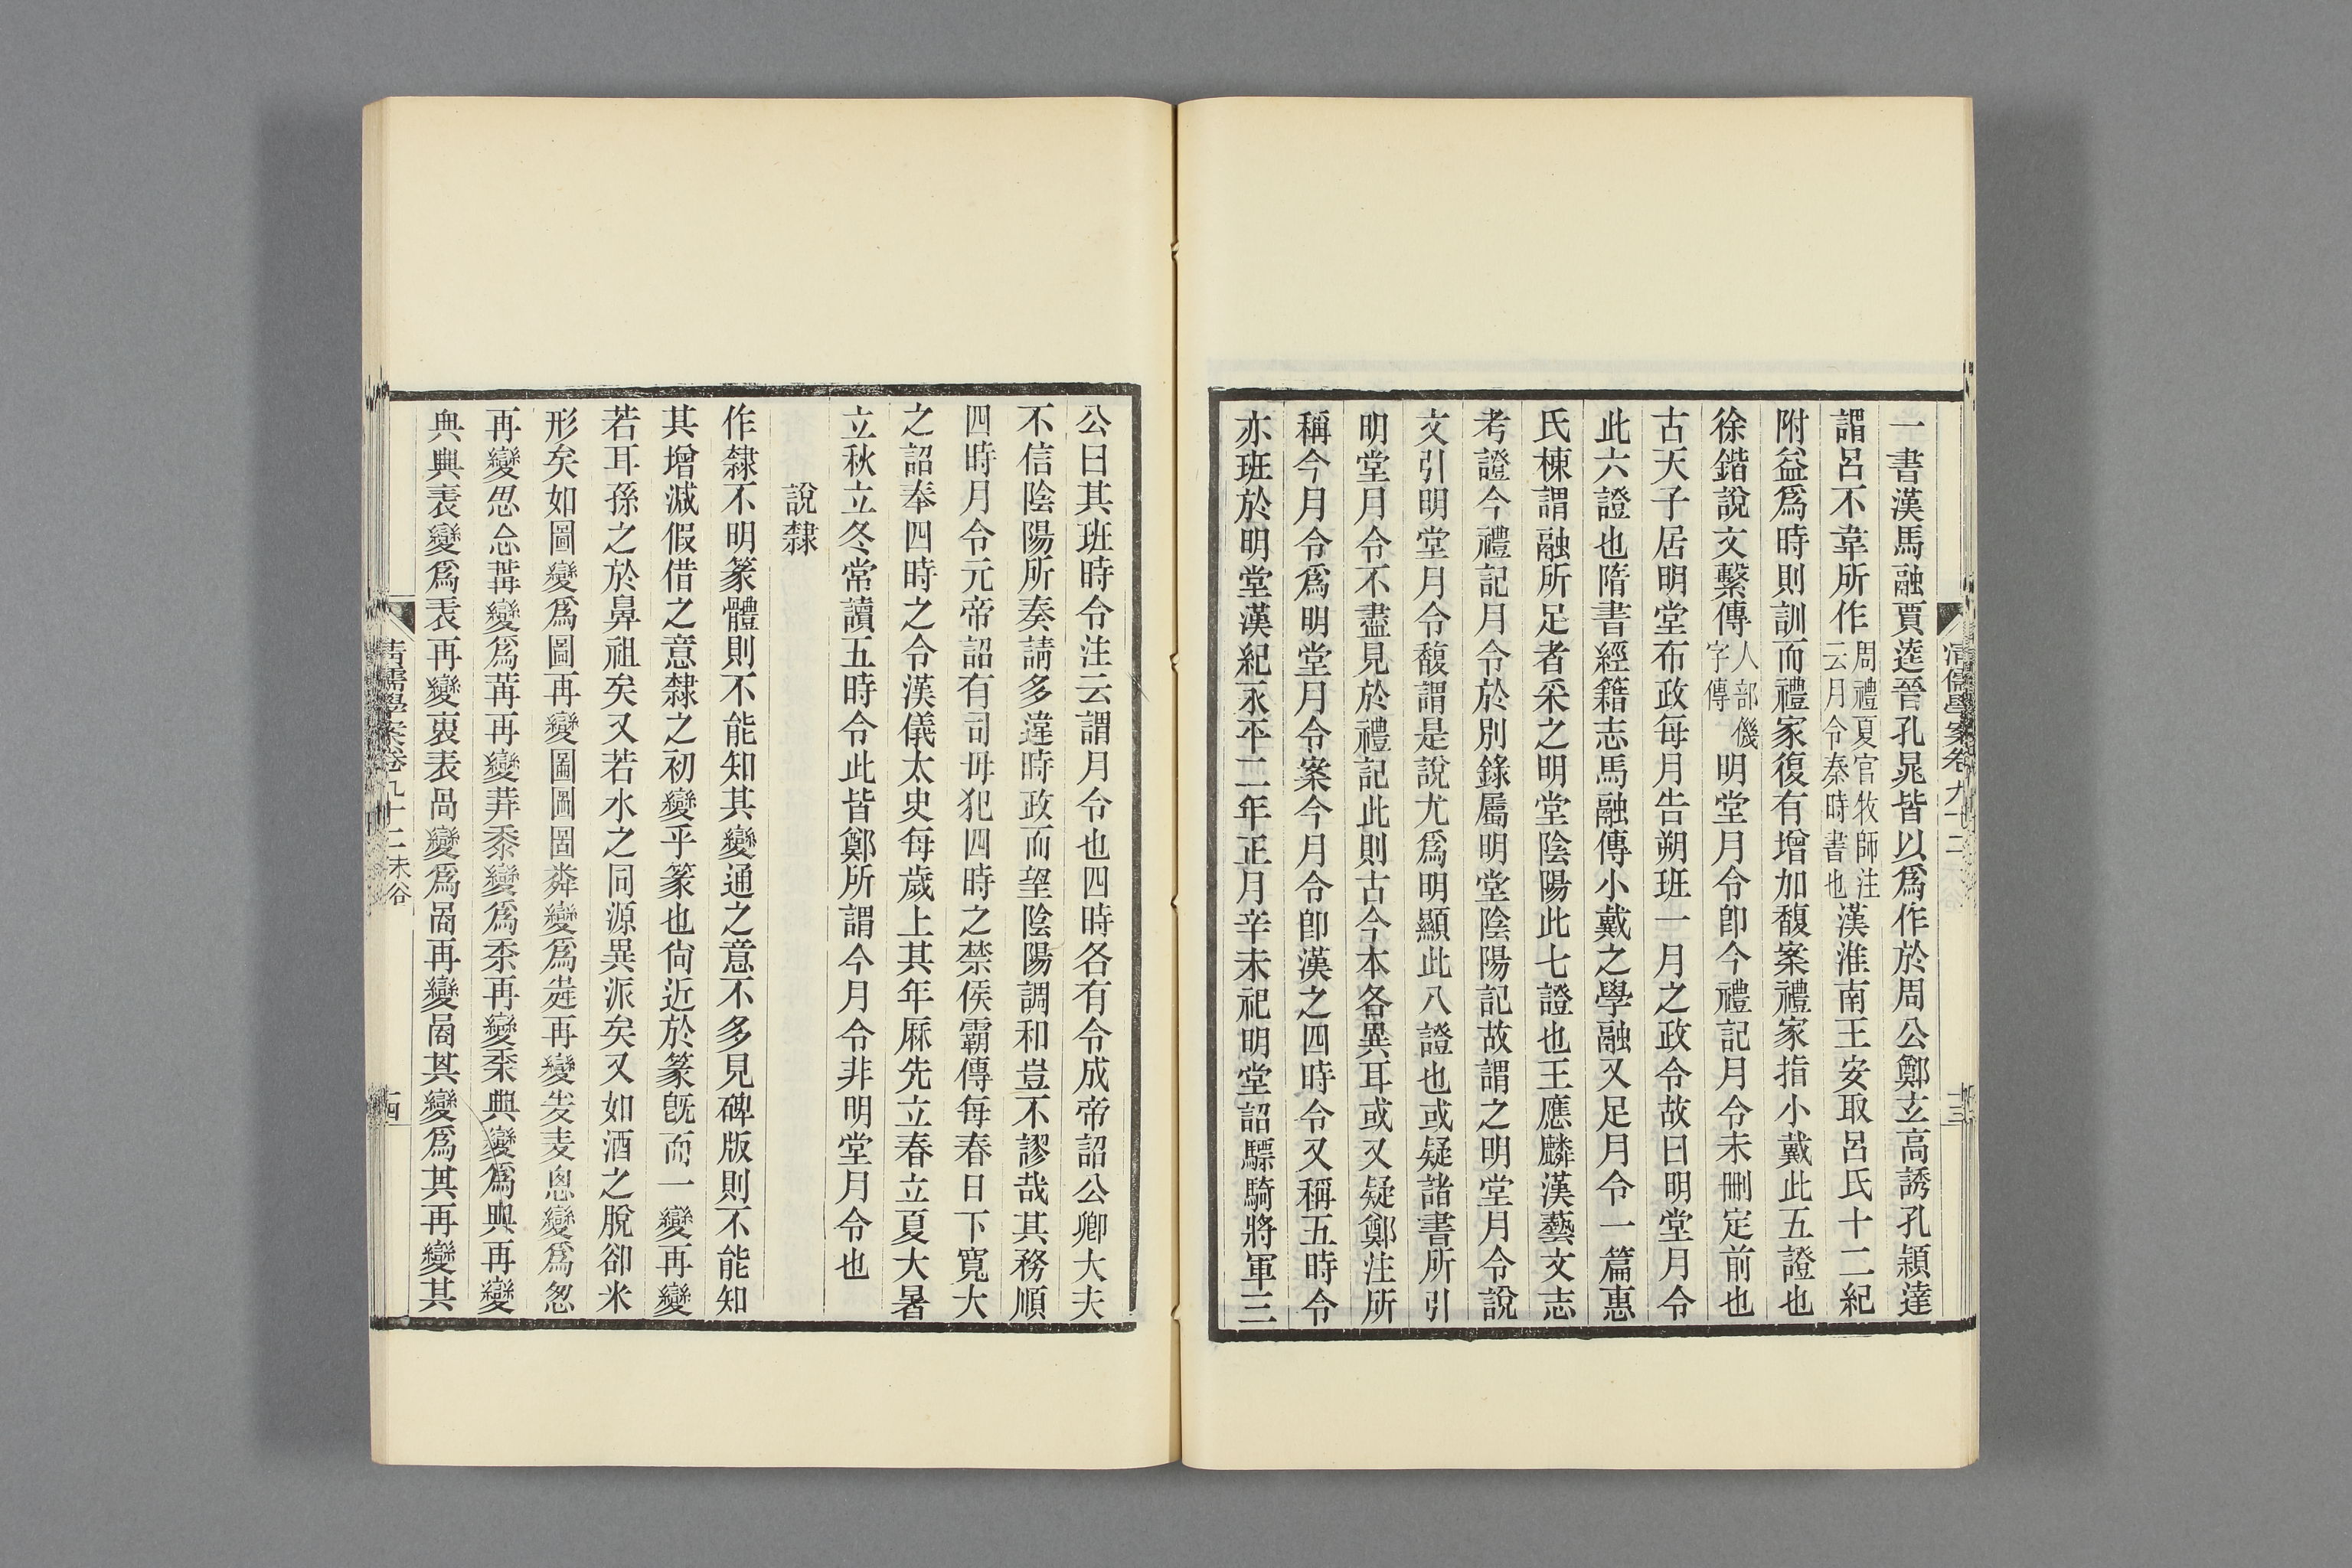 一書漢馬融賈逵晉孔晁皆以爲作於周公鄭玄高誘孔穎達
謂呂不韋所作周禮夏官牧師注云月令秦時書也漢淮南王安取呂氏十二紀
附益爲時則訓而禮家復有增加馥案禮家指小戴此五證也
徐鍇說文繫傳人部僟字傳明堂月令卽今禮記月令未刪定前也
古天子居明堂布政每月告朔班一月之政令故曰明堂月令
此六證也隋書經籍志馬融傳小戴之學融又足月令一篇惠
氏棟謂融所足者采之明堂陰陽此七證也王應麟漢藝文志
考證今禮記月令於別錄屬明堂陰陽記故謂之明堂月令說
文引明堂月令馥謂是說尤爲明顯此八證也或疑諸書所引
明堂月令不盡見於禮記此則古今本各異耳或又疑鄭注所
稱今月令爲明堂月令案今月令卽漢之四時令又稱五時令
亦班於明堂漢紀永平二年正月辛未祀明堂詔驃騎將軍三
清儒學案卷九十二
十三
公曰其班時令注云謂月令也四時各有令成帝詔公卿大夫
不信陰陽所奏請多違時政而望陰陽調和豈不謬哉其務順
四時月令元帝詔有司毋犯四時之禁侯霸傳每春日下寬大
之詔奉四時之令漢儀太史每歲上其年厤先立春立夏大暑
立秋立冬常讀五時令此皆鄭所謂今月令非明堂月令也
說隸
作隸不明篆體則不能知其變通之意不多見碑版則不能知
其增減假借之意隸之初變乎篆也尙近於篆旣而一變再變
若耳孫之於鼻祖矣又若水之同源異派矣又如酒之脫卻米
形矣如圖變爲圖再變圖圖啚粦變爲𨑒再變麦恖變爲怱
再變忽忩冓變爲冓再變冓黍變爲黍再變典變爲典再變
典典表變爲表再變表咼變爲咼再變咼其變爲其再變其
清儒學案卷九十二未谷
十四